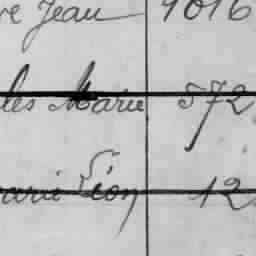 Jean 1016
les Marie 572
Léon 12